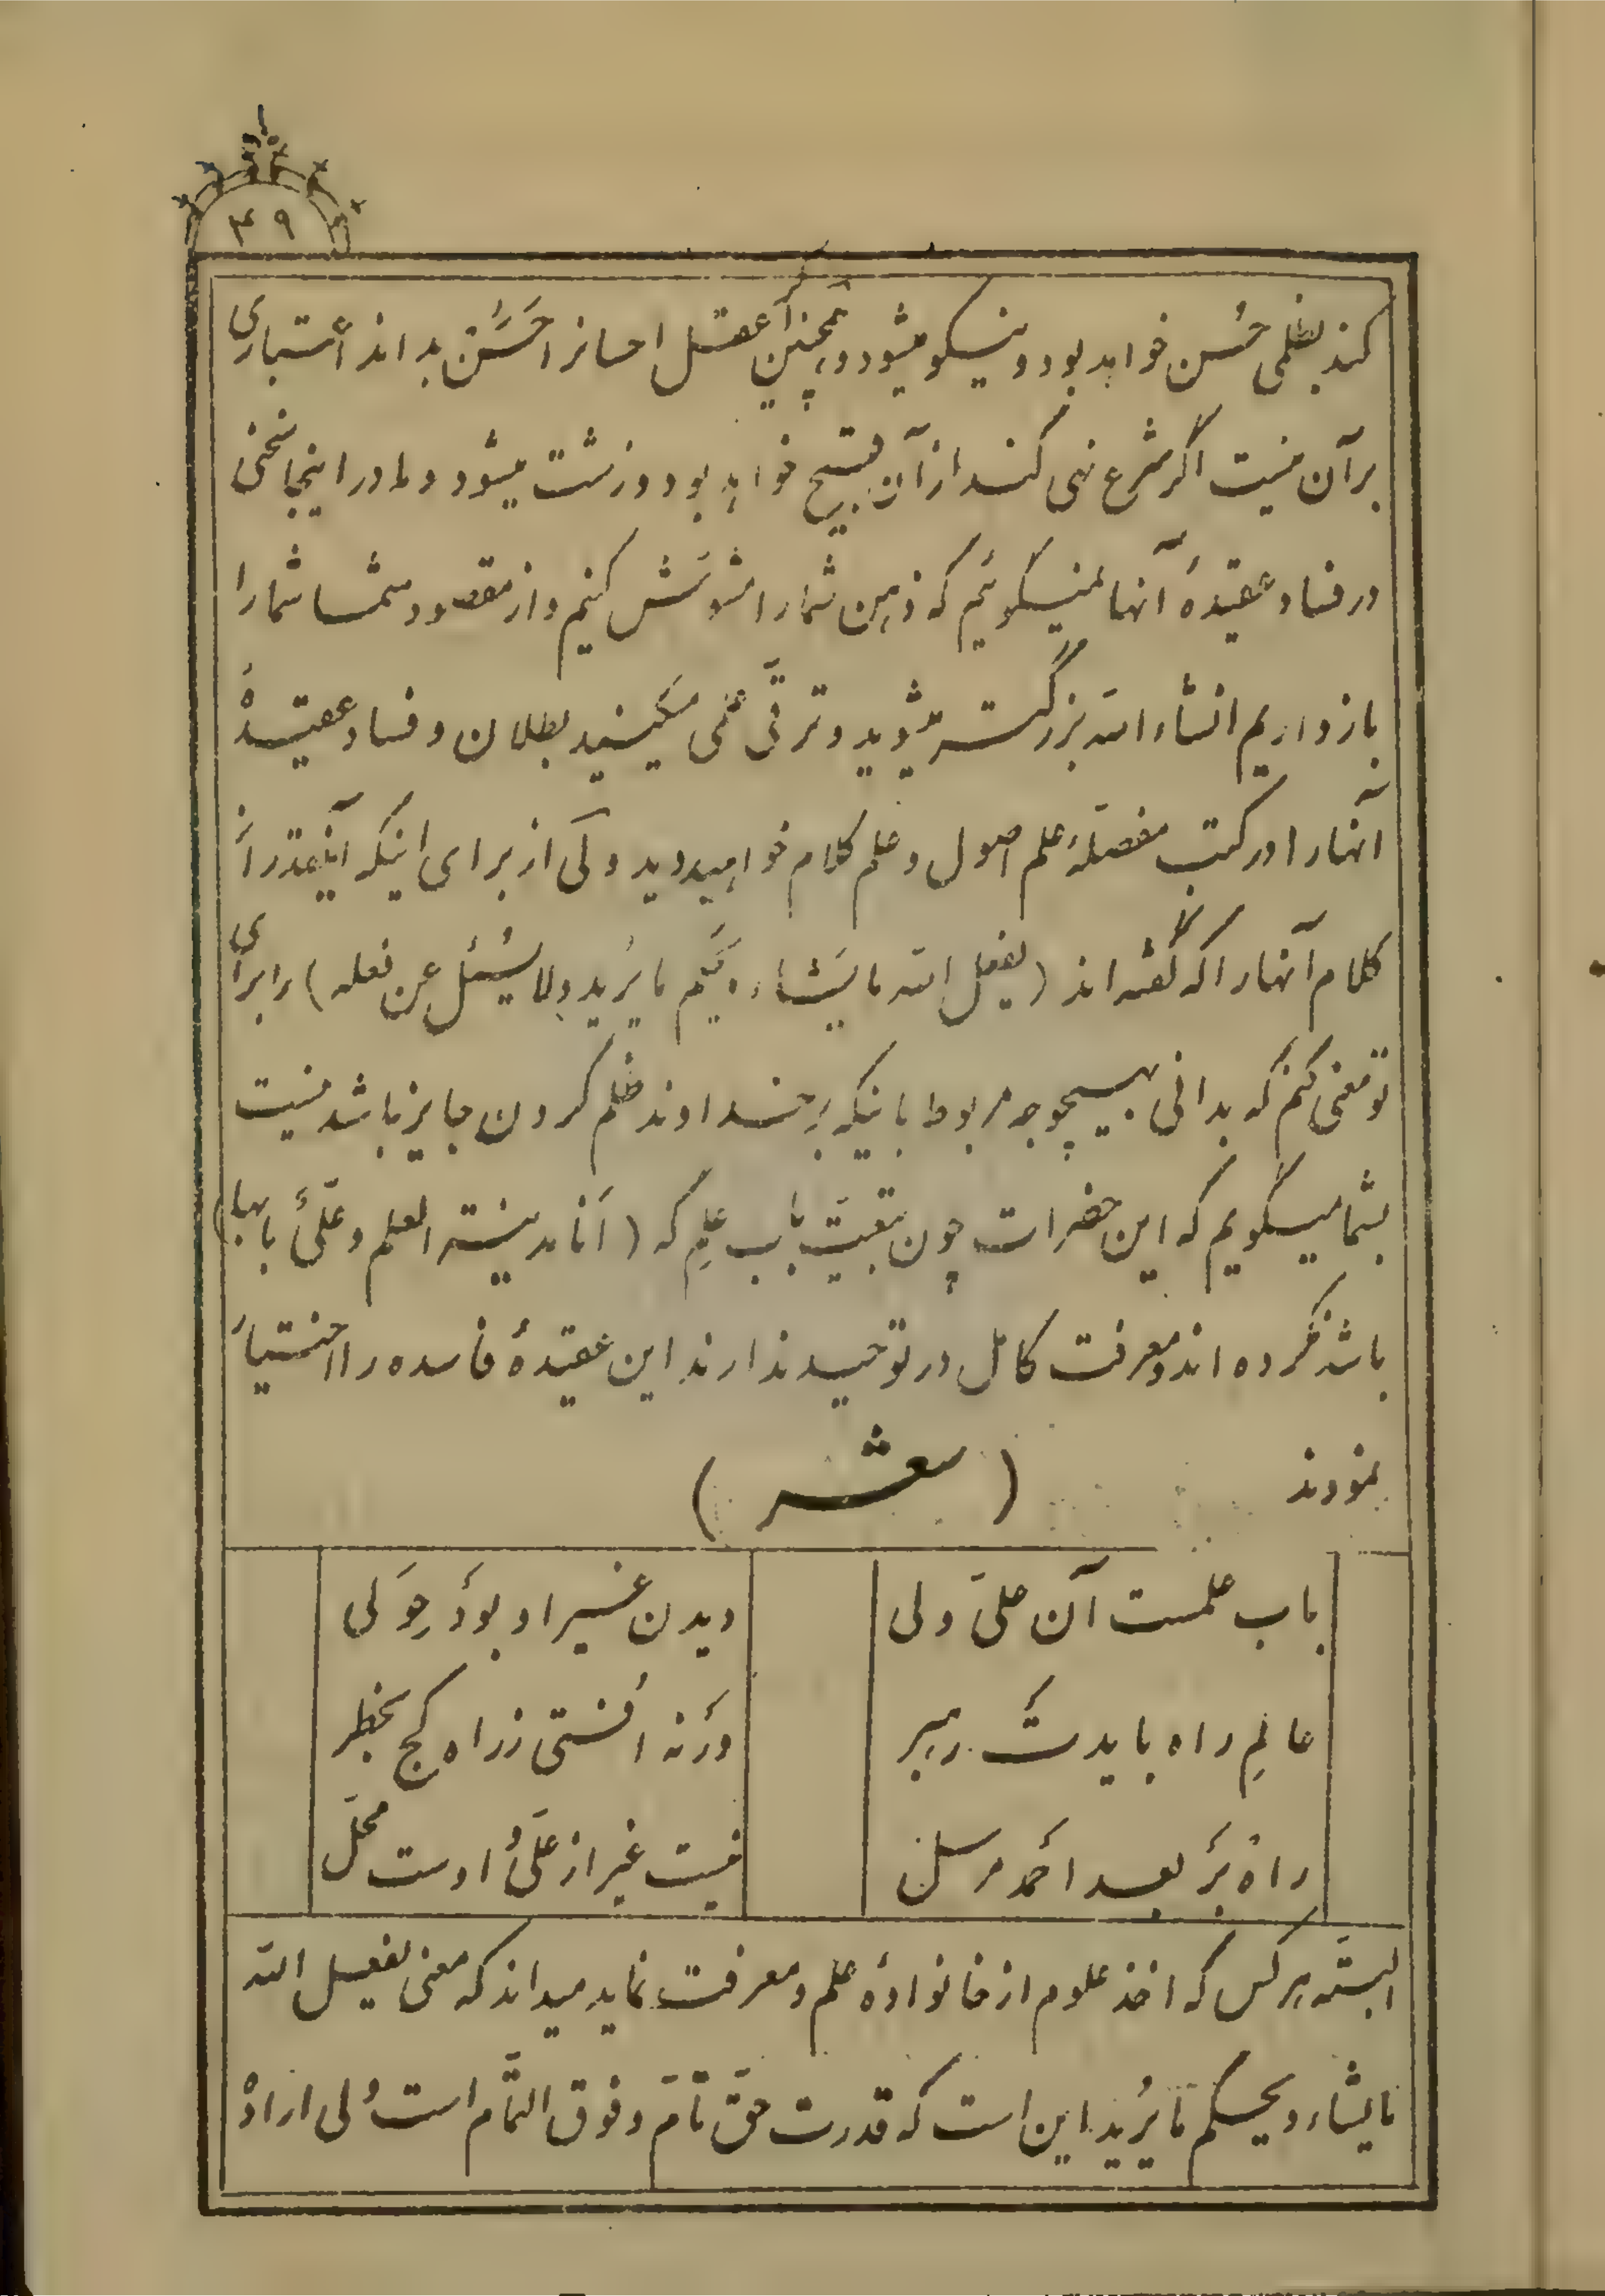 ۴۹
کند بظلمی حُسن خواهد بود و نیکو میشود و همچنین اگر عقل احسانرا حَسَن بداند اعتباری
برآن نیست اگر شرع نهی کند از آن قبیح خواهد بود و زشت میشود و ما در اینجا سخنی
در فساد عقیدهٔ آنها نمیگوئیم که ذهن شما را مشوّش کنیم و از مقصود شما شما را
باز داریم انشاء الله بزرگتر میشوید و ترقّی علمی میکنید بطلان و فساد عقیدهٔ
آنها را در کتب مفصّلهٔ علم اصول و علم کلام خواهید دید ولی از برای اینکه اینقدر از
کلام آنها را که گفته اند (یفعل الله ما یَشاء و یَحکُم ما یُرید و لا یُسئَل عن فعله) را برای
تو معنی کنم که بدانی بهیچوجه مربوط باینکه بر خداوند ظلم کردن جایز باشد نیست
بشما میگویم که این حضرات چون تبعیّت باب علم که (اَنَا مدینة العلم و علیٌّ بابها)
باشد نکرده اند و معرفت کامل در توحید ندارند این عقیدهٔ فاسده را اختیار
نمودند (شعر)
باب علمست آن علیّ ولی دیدن غیر او بود حِوَلی
عالِم راه بایدت رهبر وَرنه اُفتی ز راه کج بخطر
راه بَر بعد احمد مرسل نیست غیر از علی و اوست محلّ
البتّه هر کس که اخذ علوم از خانوادهٔ علم و معرفت نماید میداند که معنی یفعل الله
ما یشاء و یحکم ما یُرید این است که قدرت حقّ تامّ و فوق التّمام است ولی ارادهٔ